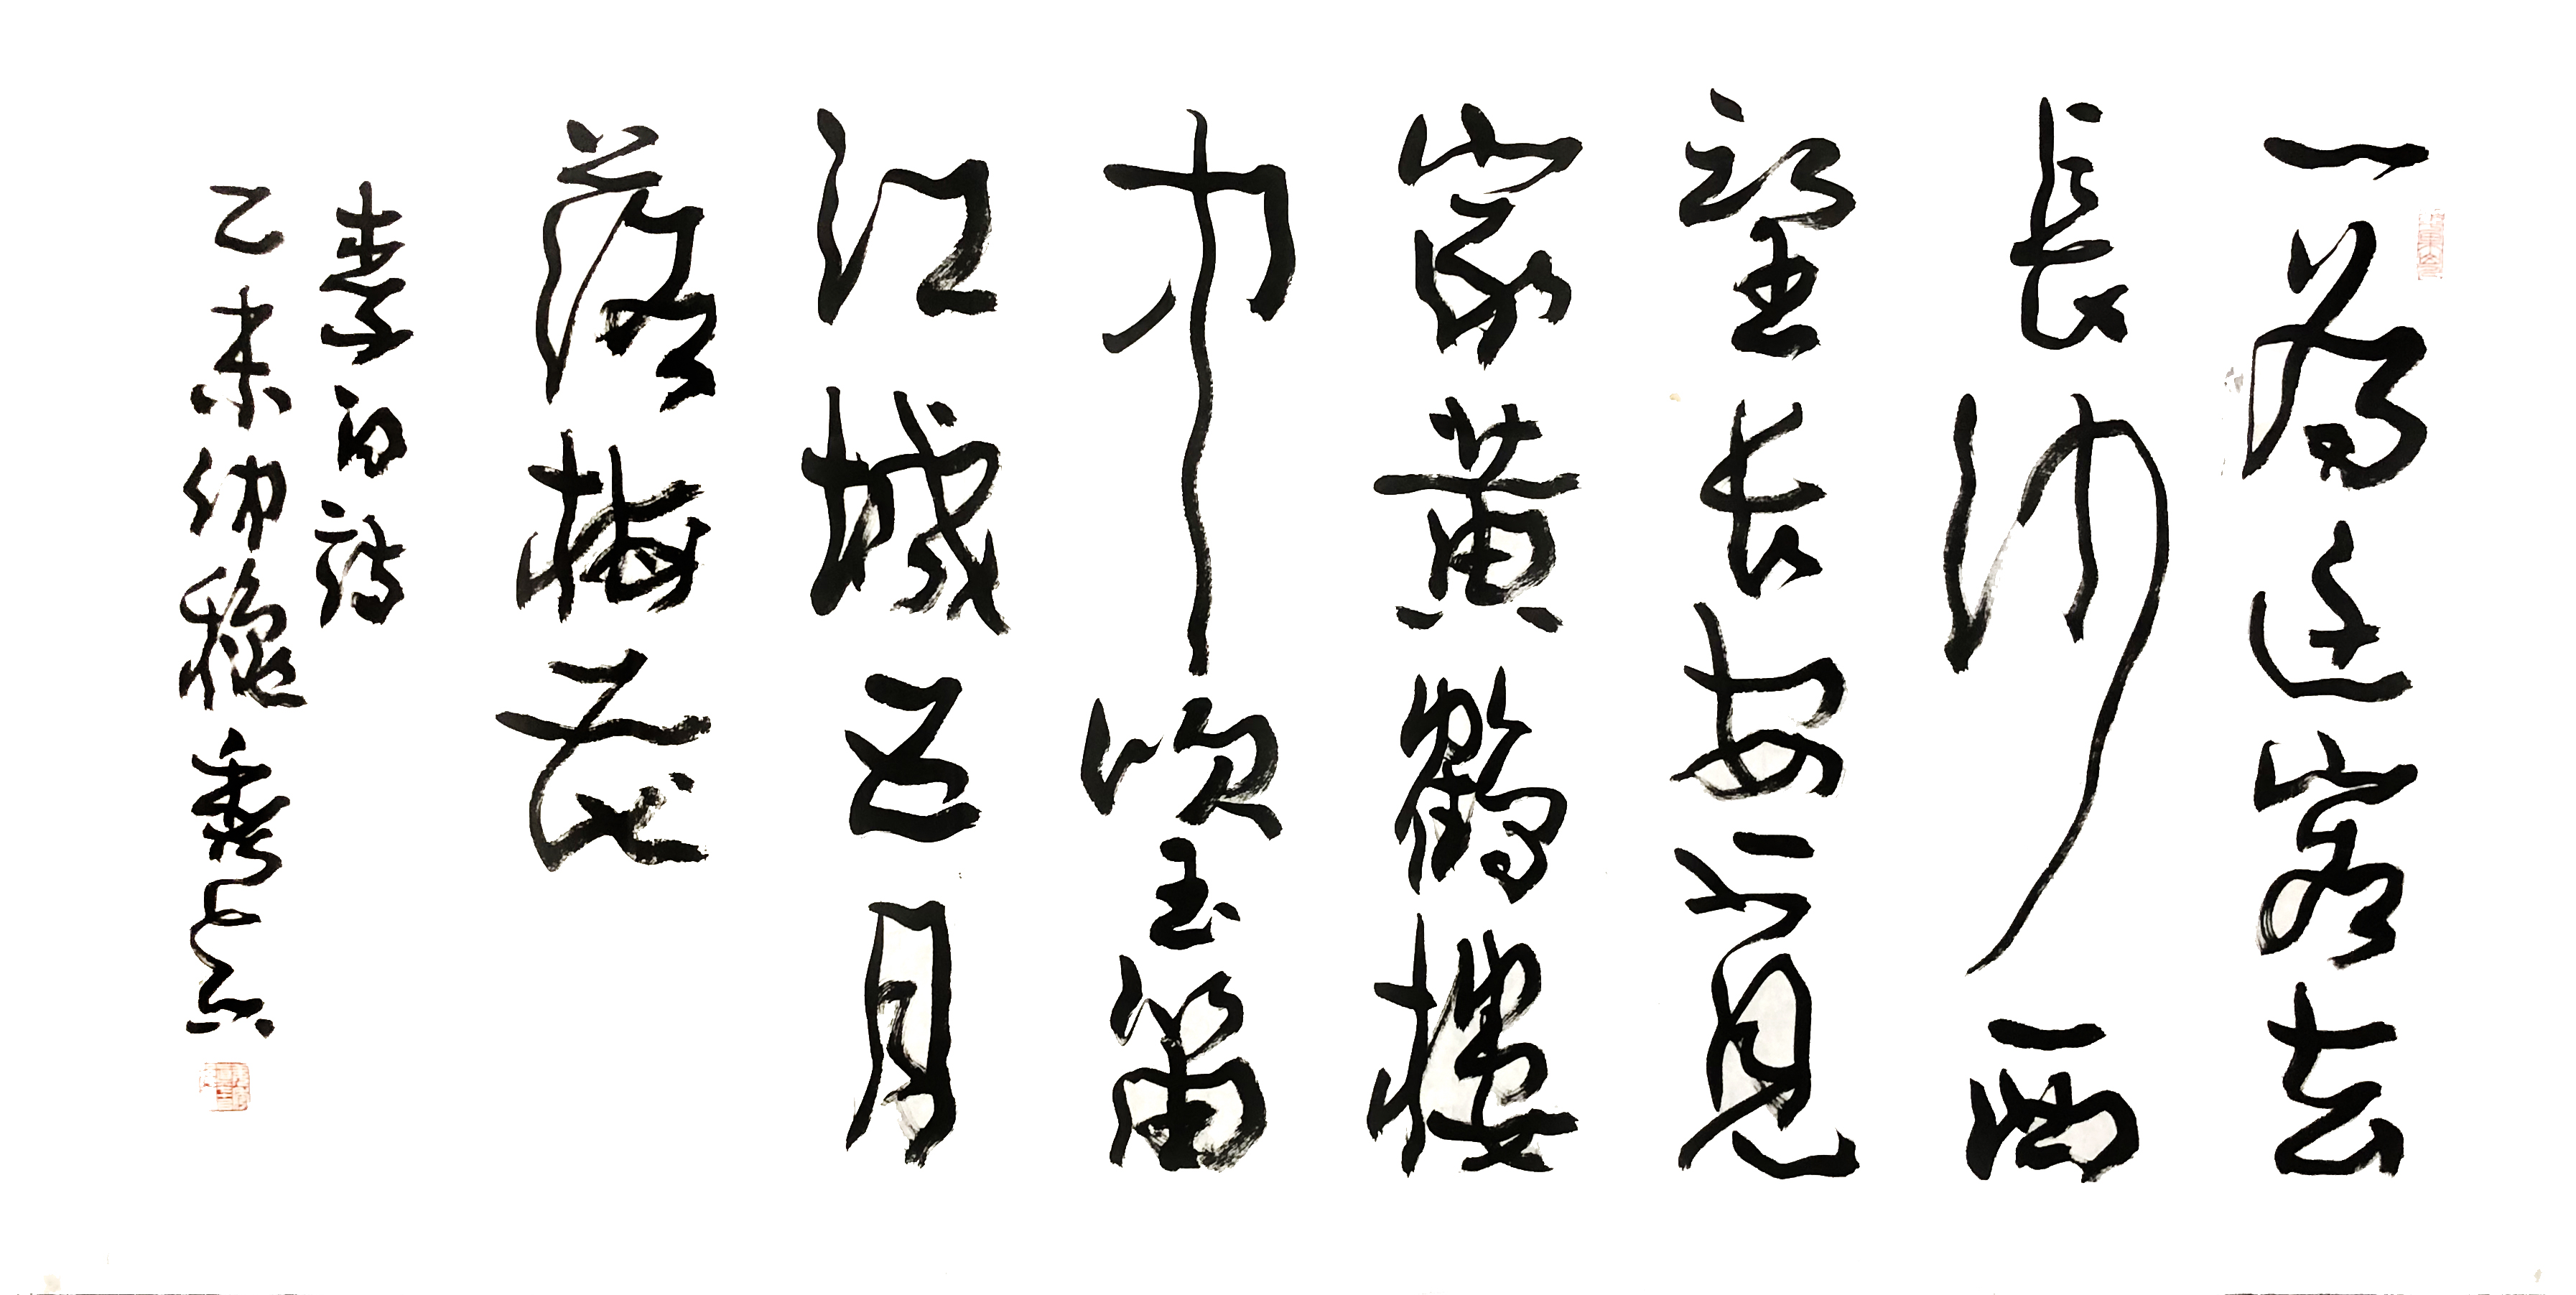 一為迁客去
長沙西
望长安不見
家黃鶴樓
中吹玉笛
江城五月
落梅花
李白詩
乙未仲穐